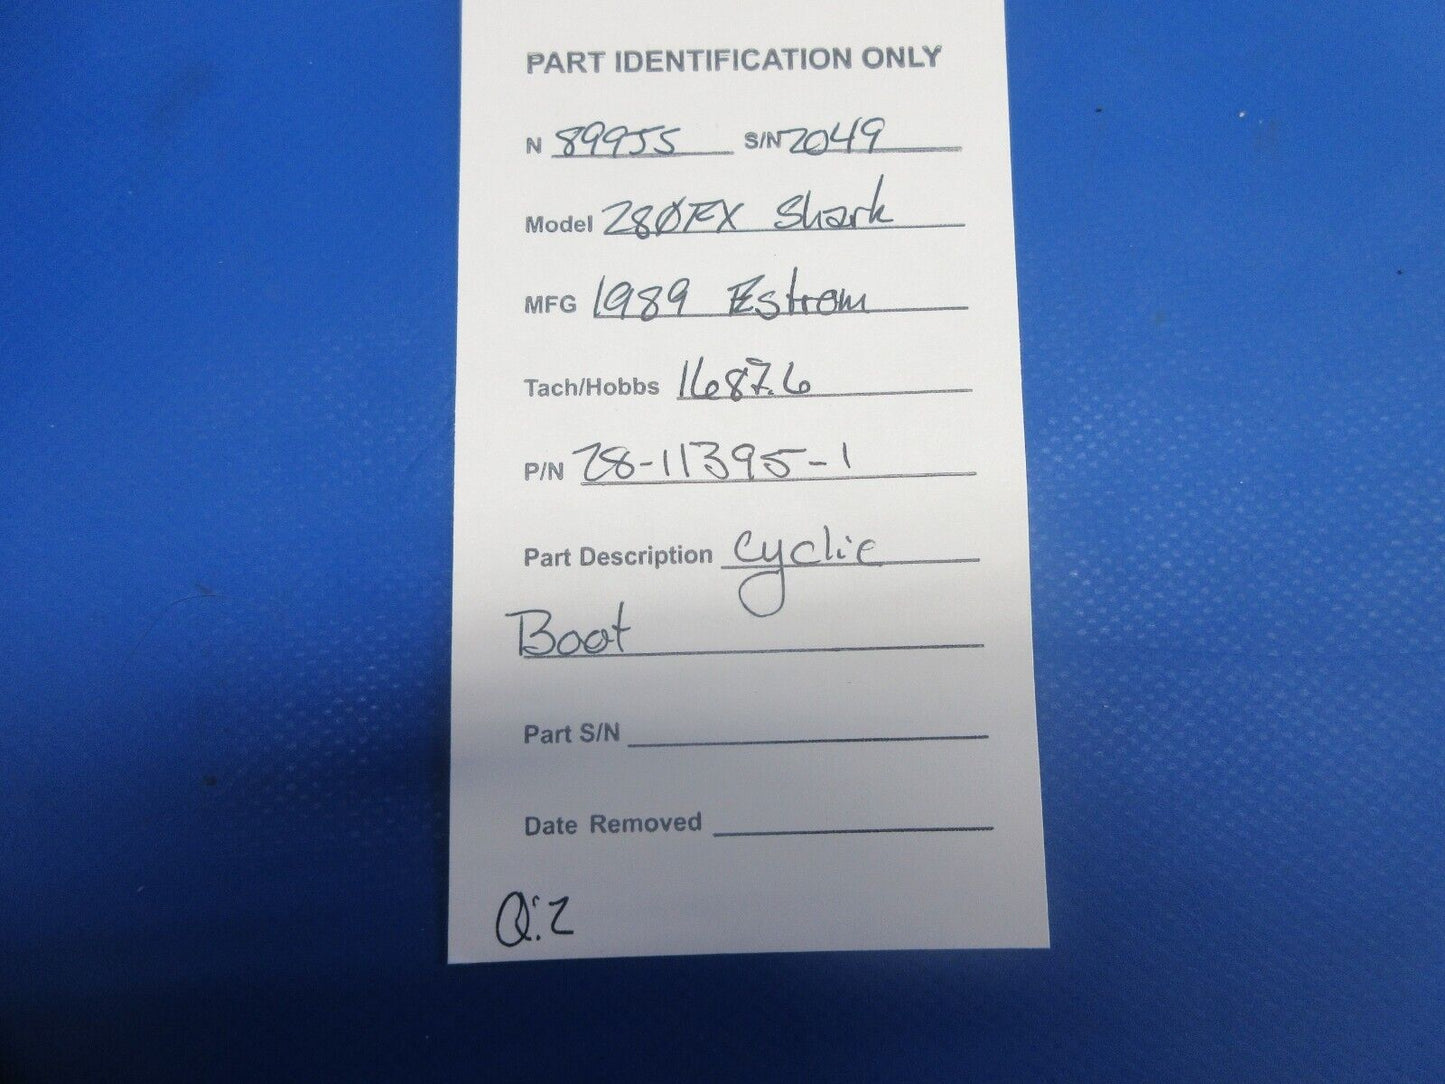 PART IDENTIFICATION ONLY
N 89955 S/N 2049
Model 280FX Shark
MFG 1989 Estrom
Tach/Hobbs 1687.6
P/N 28-11395-1
Part Description Cyclic
Boot
Part S/N
Date Removed
Q:2